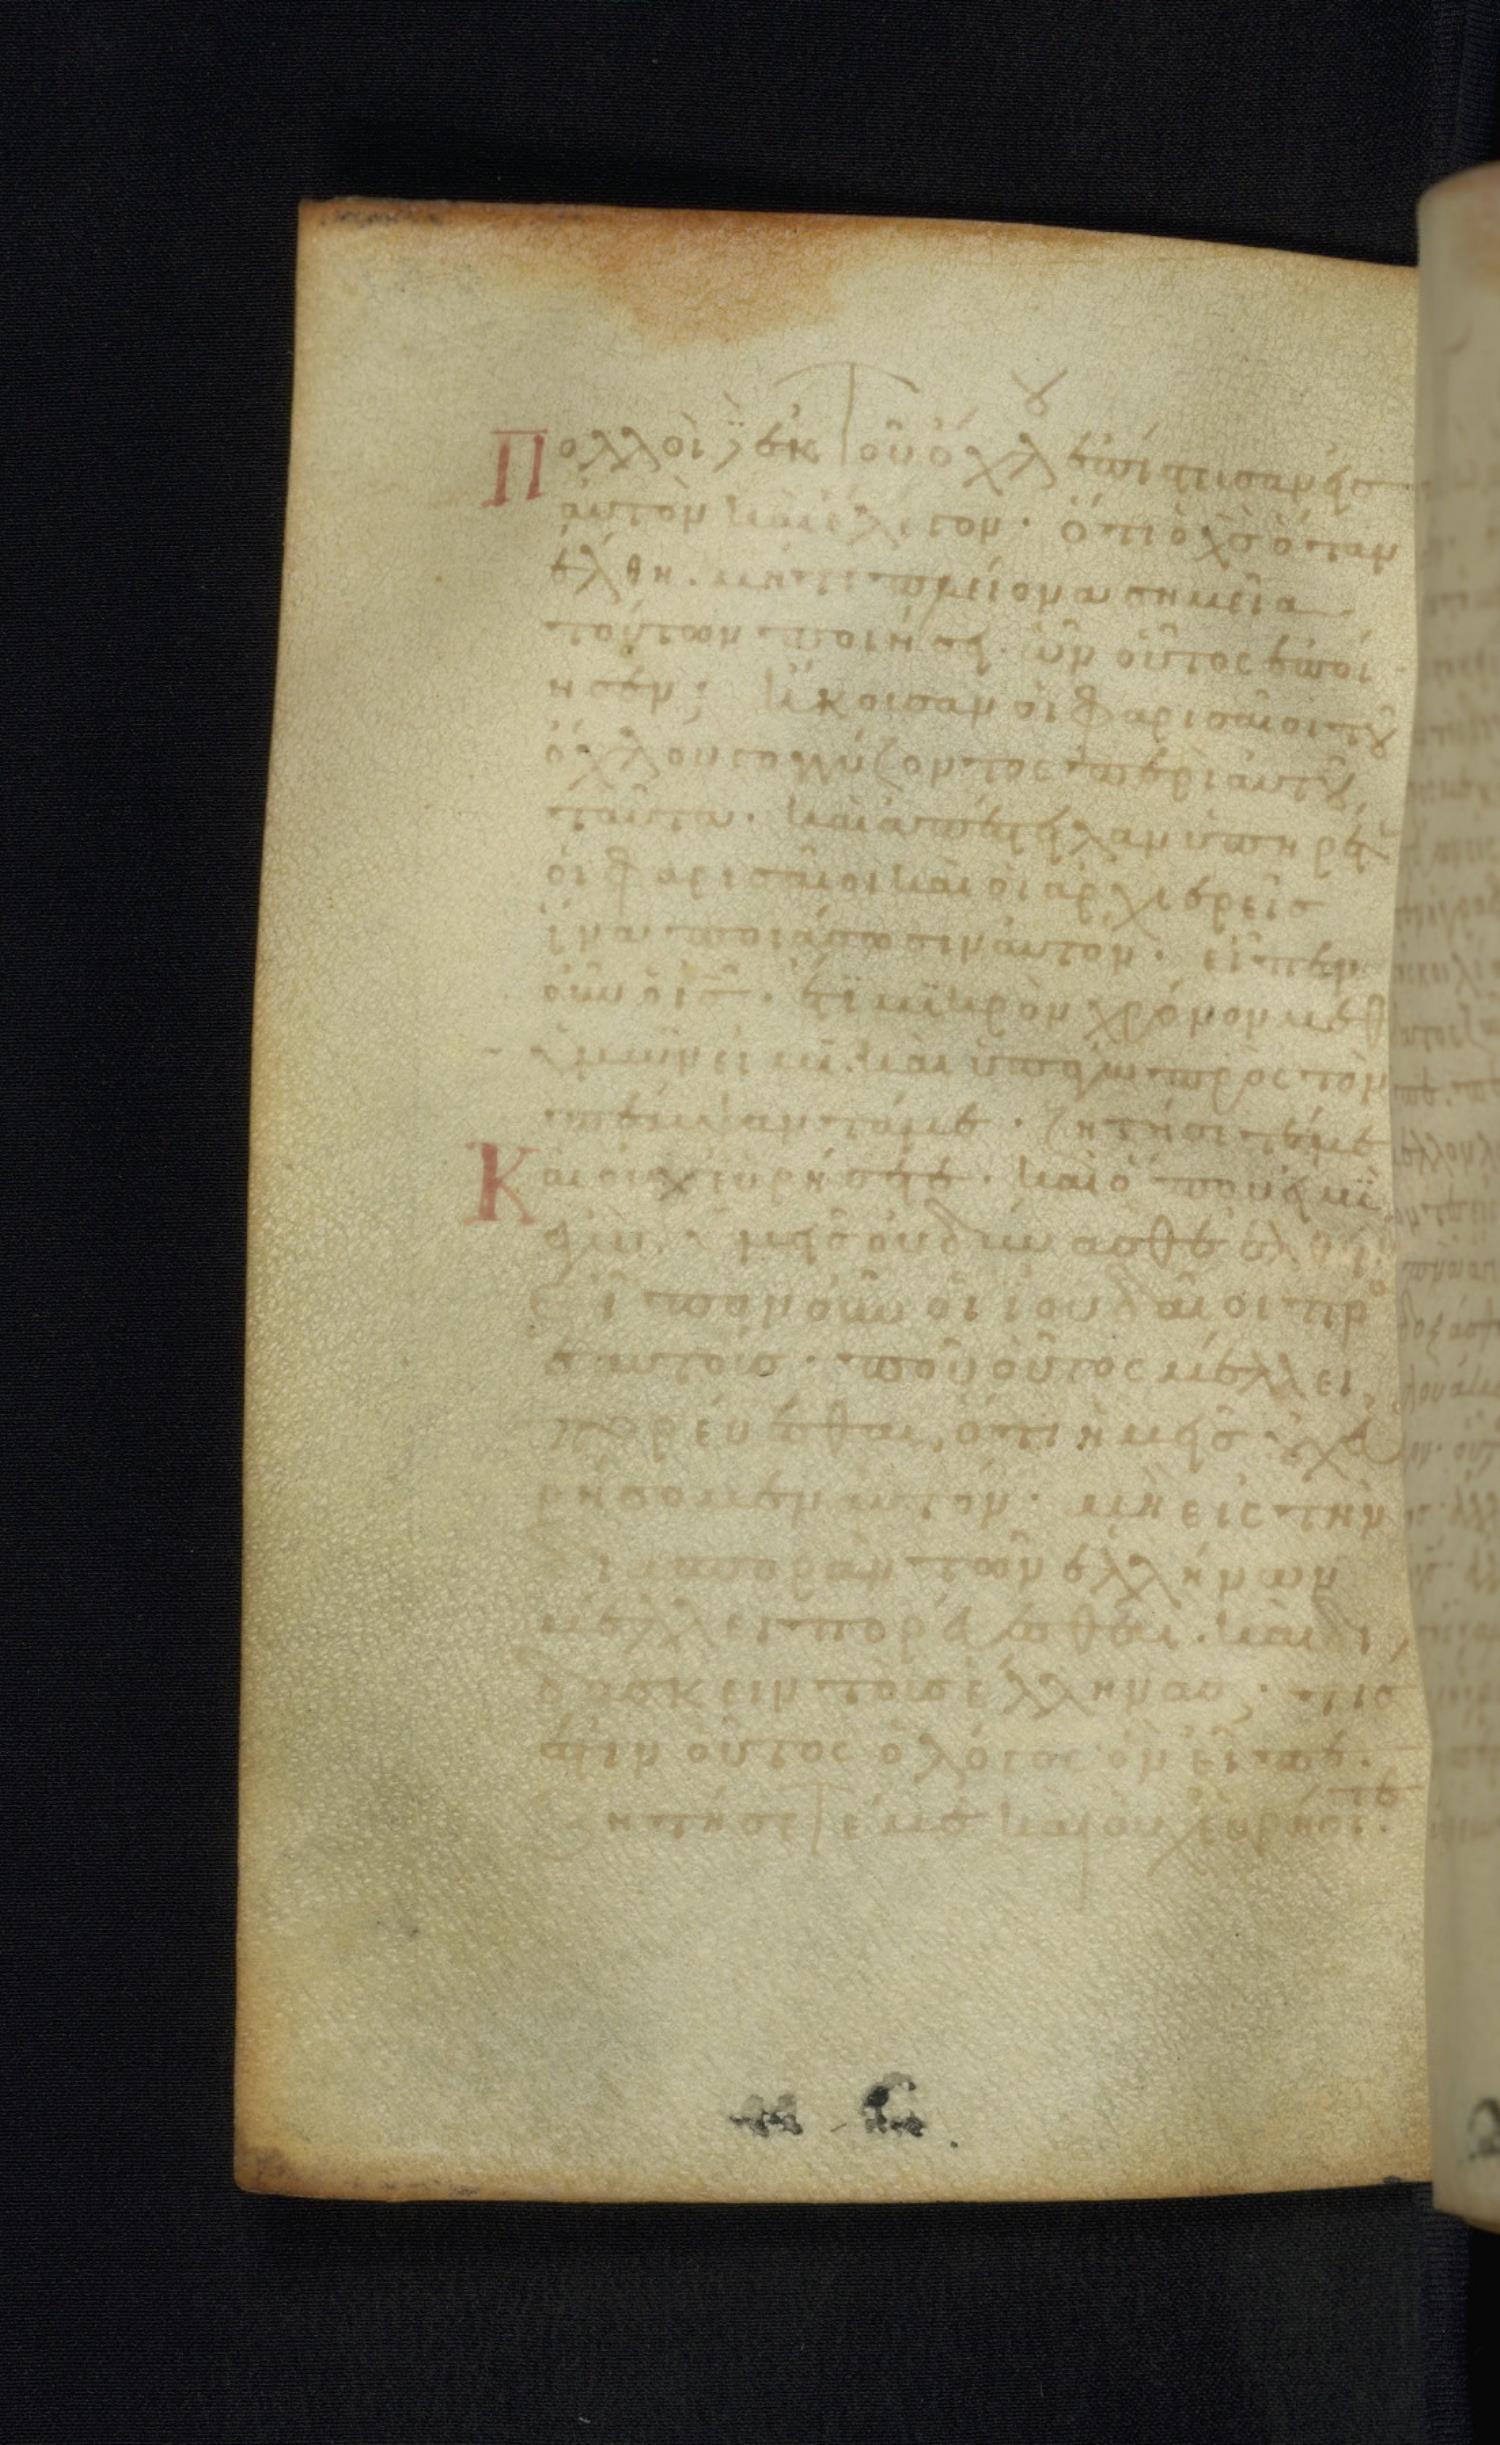 Πολλοὶ δὲ ἐκ τοῦ ὄχλου ἐπίστευσαν εἰς
αὐτὸν καὶ ἔλεγον· ὅτι ὁ χς ὅταν
ἔλθη· μήτι πλείονα σημεῖα
τούτων ποιήσει· ὧν οὗτος ἐποί
ησεν; ἤκουσαν οἱ φαρισαῖοι τοῦ
ὄχλου γογγύζοντος περὶ αὐτοῦ
ταῦτα· καὶ ἀπέστειλαν ὑπηρέτας
οἱ φαρισαῖοι καὶ οἱ ἀρχιερεῖς
ἵνα πιάσωσιν αὐτόν· εἶπεν
οὖν ὁ ις· ἔτι μικρὸν χρόνον μεθ
ὑμῶν εἰμι· καὶ ὑπάγω πρὸς τὸν
πέμψαντά με· ζητήσετέ με
Καὶ οὐχ εὑρήσετε· καὶ ὅπου εἰμὶ
ἐγὼ· ὑμεῖς οὐ δύνασθε ἐλθεῖν·
Εἶπον οὖν οἱ ἰουδαῖοι πρὸς
ἑαυτούς· ποῦ οὗτος μέλλει
πορεύεσθαι, ὅτι ἡμεῖς οὐχ εὑ
ρήσομεν αὐτόν· μὴ εἰς τὴν
διασπορὰν τῶν ἑλλήνων
μέλλει πορεύεσθαι· καὶ δι
δάσκειν τοὺς ἕλληνας· τίς
ἐστιν οὗτος ὁ λόγος ὃν εἶπε·
ζητήσετέ με καὶ οὐχ εὑρήσετε·